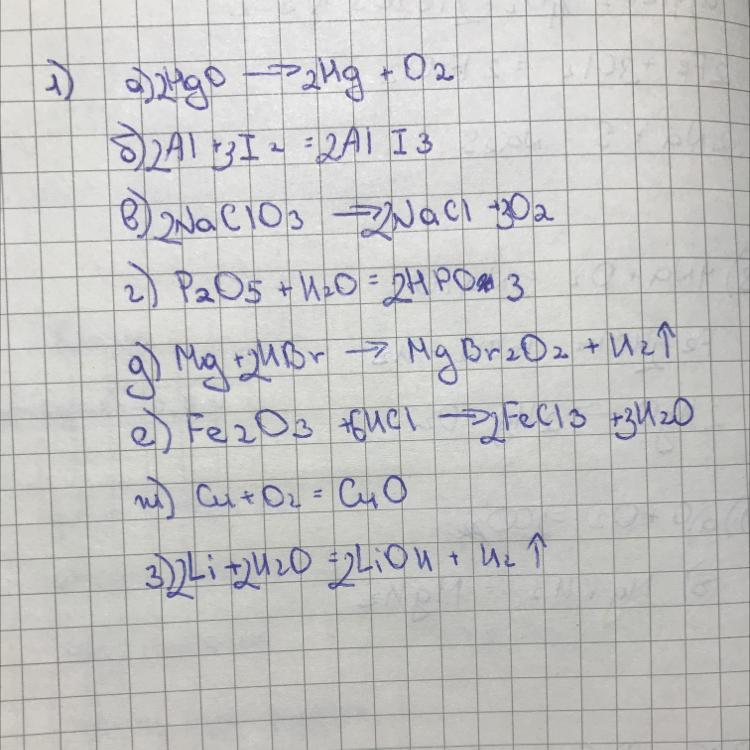 1) а) 2HgO → 2Hg + O2
б) 2Al + 3I2 = 2Al I3
в) 2NaClO3 → 2NaCl + 3O2
г) P2O5 + H2O = 2HPO3
д) Mg + 2HBr → MgBr2O2 + H2↑
е) Fe2O3 + 6HCl → 2FeCl3 + 3H2O
ж) Cu + O2 = CuO
з) 2Li + 2H2O = 2LiOH + H2↑